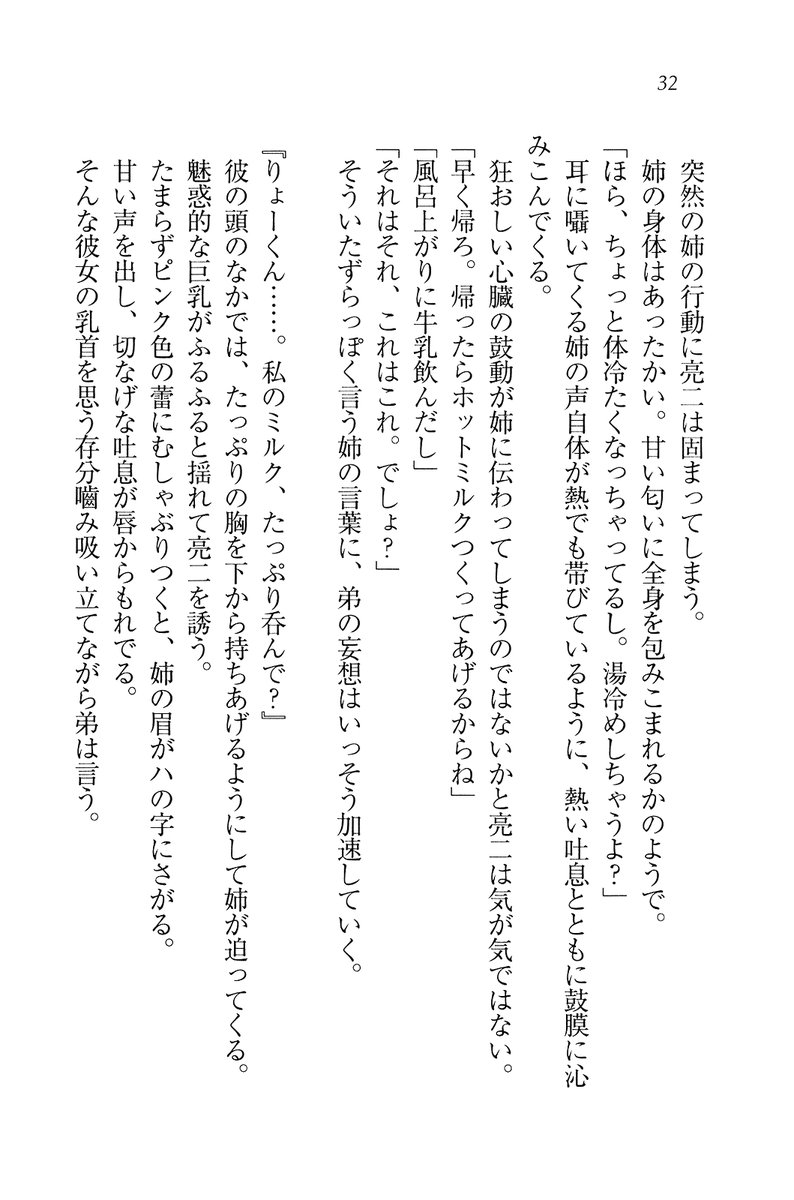 32
突然の姉の行動に亮二は固まってしまう。
姉の身体はあったかい。甘い匂いに全身を包みこまれるかのようで。
「ほら、ちょっと体冷たくなっちゃってるし。湯冷めしちゃうよ？」
耳に囁いてくる姉の声自体が熱でも帯びているように、熱い吐息とともに鼓膜に沁
みこんでくる。
狂おしい心臓の鼓動が姉に伝わってしまうのではないかと亮二は気が気ではない。
「早く帰ろ。帰ったらホットミルクつくってあげるからね」
「風呂上がりに牛乳飲んだし」
「それはそれ、これはこれ。でしょ？」
そういたずらっぽく言う姉の言葉に、弟の妄想はいっそう加速していく。
『りょーくん……。私のミルク、たっぷり呑んで？』
彼の頭のなかでは、たっぷりの胸を下から持ちあげるようにして姉が迫ってくる。
魅惑的な巨乳がふるふると揺れて亮二を誘う。
たまらずピンク色の蕾にむしゃぶりつくと、姉の眉がハの字にさがる。
甘い声を出し、切なげな吐息が唇からもれでる。
そんな彼女の乳首を思う存分嚙み吸い立てながら弟は言う。